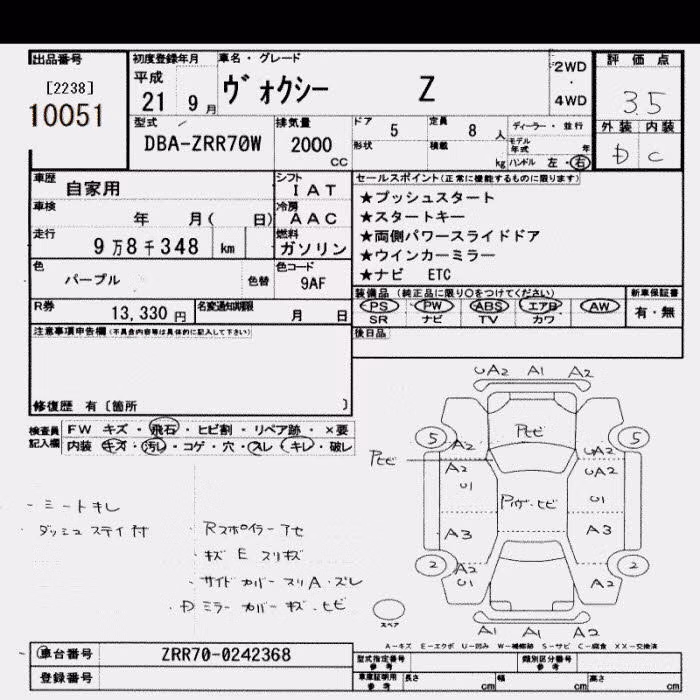 出品番号
[2238]
10051
初度登録年月
平成
21 9 月
車名・グレード
ヴォクシー Z
2WD
・
4WD
評価点
3.5
外装 内装
D C
型式
DBA-ZRR70W
排気量
2000
CC
ドア 5
定員 8 人
形状
積載 kg
ディーラー・並行
モデル年式 年
ハンドル 左・右
車歴 自家用
車検 年 月( 日)
走行 9万8千348 km
色 パープル 色替
シフト IAT
冷房 AAC
燃料 ガソリン
色コード 9AF
セールスポイント(正常に機能するものに限ります)
★プッシュスタート
★スタートキー
★両側パワースライドドア
★ウインカーミラー
★ナビ ETC
装備品(純正品に限り○をつけてください)
PS PW ABS エアB AW
SR ナビ TV カワ
新車保証書
有・無
後日品
R券 13,330 円
名変通知期限 月 日
注意事項申告欄(不具合内容等は具体的に記入して下さい)
修復歴 有〔箇所 〕
検査員記入欄
FW キズ・飛石・ヒビ割・リペア跡・×要
内装 キズ・汚レ・コゲ・穴・スレ・キレ・破レ
・ミートキレ
・ダッシュステイ付
・Rスポイラーアセ
・キズ E スリキズ
・サイドカバースリA・ズレ
・Dミラーカバーキズ・ヒビ
UA2 A1 A2
Pセビ
5 5
A2 A2
Pセビ
A2 UA2
U1 U1
A3 A3
2 2
A2 A2
U1 A2
A1 A1 A2
スペア
A−キズ E−エクボ U−凹み W−補修跡 S−サビ C−腐食 XX−交換済
車台番号 ZRR70-0242368
登録番号
型式指定番号 参考
類別区分番号 参考
車庫証明用 参考
長さ cm
幅 cm
高さ cm